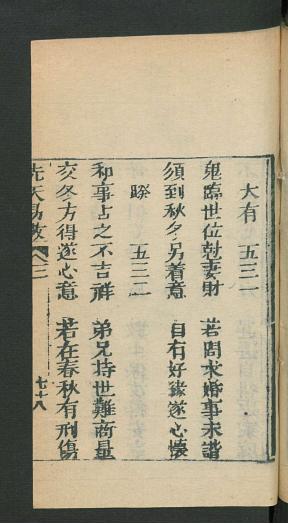 大有 五三一
鬼臨世位尅妻財 若問求婚事未諧
須到秋冬另着意 自有好緣遂心懷
睽 五三二
和事占之不吉祥 弟兄持世難商量
交冬方得遂心意 若在春秋有刑傷
先天易數 七十八